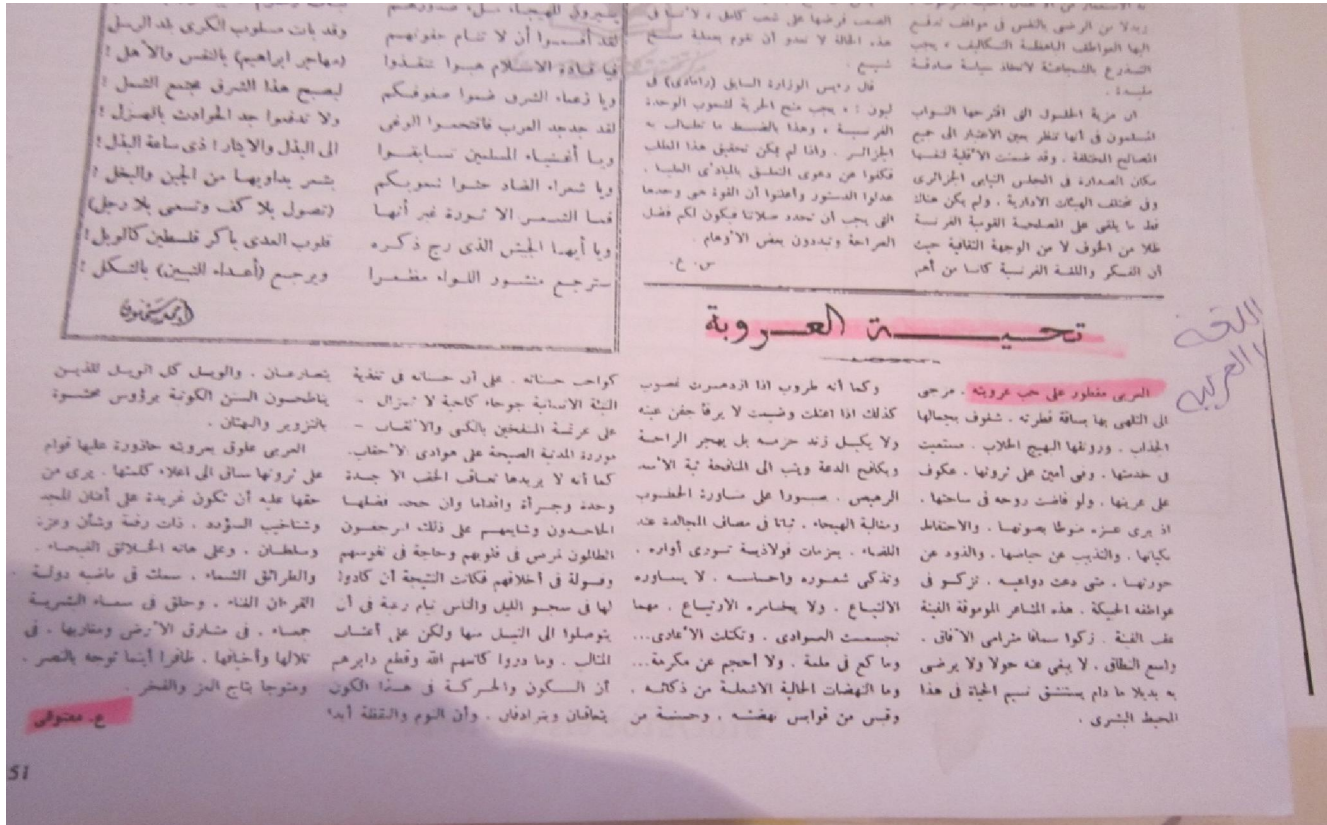 زبدلا من الرضى بالنفس فى مواقف تدفع
اليها العواطف الباهظة التكاليف ، يجب
التذرع بالشجاعة لاتخاذ سياسة صادقة
ان مزية الحلول التى اقترحها النواب
المسلمون فى أنها تنظر بعين الاعتبار الى جميع
المصالح المختلفة . وقد ضمنت الأقلية لنفسها
مكان الصدارة فى المجلس النيابى الجزائرى
وفى مختلف الهيئات الادارية . ولم يكن هناك
قط ما يلقى على المصلحية القومية الفرنسية
ظلا من الخوف لا من الوجهة الثقافية حيث
أن الفكر واللغة الفرنسية كانا من أهم
الصعب فرضها على شعب كامل ، لا سيما فى
هذه الحالة لا تعدو أن تقوم بعملية مسخ
قال رئيس الوزارة السابق (رامادى) فى
ليون : « يجب منح الحرية لشعوب الوحدة
الفرنسية » وهذا بالضبط ما تطالب به
الجزائر . واذا لم يمكن تحقيق هذا الطلب
فكفوا عن دعوى التعلق بالمبادى العليا .
عدلوا الدستور وأعلنوا أن القوة هى وحدها
التى يجب أن تحدد صلاتنا فيكون لكم فضل
الصراحة وتبددون بعض الأوهام .
س . ع .
لقد أقسموا أن لا تنام جفونهم
وقد بات مسلوب الكرى لمد الرسل
فيا قادة الاسلام هبوا تنقذوا
(مهاجر ابراهيم) بالنفس والأهل !
ويا زعماء الشرق ضموا صفوفكم
ليصبح هذا الشرق مجتمع الشمل !
لقد جدجد العرب فاقتحموا الوغى
ولا تدفعوا جد الحوادث بالهزل !
ويا أغنياء المسلمين تسابقوا
الى البذل والايثار ! ذى ساعة البذل !
ويا شعراء الضاد حثوا شعوبكم
بشعر يداويها من الجبن والبخل !
فما الشعر الا ثورة غير أنها
(تصول بلا كف وتسعى بلا رجل)
ويا أيهما الجيش الذى رج ذكره
قلوب العدى باكر فلسطين كالويل !
سترجع منشور اللواء مظفرا
ويرجع (أعداء النبيين) بالثكل !
أحمد سحنون
تحيـــة العـــروبة
اللغة
العربية
العربى مفطور على حب عروبته . مزجى
الى التلهى بها بساقة فطرته . شغوف بجمالها
الجذاب . ورونقها البهيج الخلاب . مستميت
فى خدمتها . وفى أمين على ثروتها . عكوف
على عرينها . ولو فاضت روحه فى ساحتها .
اذ يرى عزه منوطا بصونها . والاحتفاظ
بكيانها . والتذبيب عن حياضها . والذود عن
حوزتها . متى دعت دواعيه . تزكو فى
عواطفه الحبيكة . هذه المشاعر الموموقة الفينة
عقب الفينة . زكوا سامقا مترامى الآفاق .
واسع النطاق . لا يبغى عنه حولا ولا يرضى
به بديلا ما دام يستنشق نسيم الحياة فى هذا
المحيط البشرى .
وكما أنه طروب اذا ازدهرت لغصوب
كذلك اذا اعتلت وضيمت لا يرقأ جفن عينه
ولا يكبل زند حزمه بل يهجر الراحة
ويكافح الدعة ويثب الى المنافحة ثبة الأسد
الرهيص . صبورا على مساورة الخطوب
ومثالبة الهيجاء . ثباتا فى مصاف المجالدة عند
اللقاء . بعزمات فولاذية تورى أواره .
وتذكى شعوره واحساسه . لا يساوره
الالتياع . ولا يخامره الارتياع . مهما
تجسمت العوادى . وتكتلت الأعادى...
وما كع فى ملمة . ولا أحجم عن مكرمة...
وما النهضات الحالية الا شعلة من ذكائه .
وقبس من قوابس نهضته . وحسنة من
كواعب حسناته . على أن حسانه فى تغذية
البيئة الانسانية جوحاء كاحية لا تزال -
موردة المدنية الصبيحة على هوادى الأحقاب .
كما أنه لا يزيدها تعاقب الحقب الا جدة
وحدة وجرأة واقداما وان جحد فضلها
الجاحدون وشايعهم على ذلك المرجفون
الظالمون لمرض فى قلوبهم وحاجة فى نفوسهم
وفسولة فى أخلاقهم فكانت النتيجة أن كادوا
لها فى سجو الليل والناس نيام رغبة فى أن
يتوصلوا الى النيل منها ولكن على أعتاب
المثالب . وما دروا كأسهم الله وقطع دابرهم
أن السكون والحركة فى هذا الكون
يتعاقبان ويترادفان . وأن النوم واليقظة أبدا
يتصارعان . والويل كل الويل للذين
يناطحون السنن الكونية برؤوس محشوة
بالتزوير والبهتان .
العربى علوق بعروبته حاذورة عليها قوام
على ثروتها سباق الى اعلاء كلمتها . يرى من
حقها عليه أن تكون غريدة على أفنان المجد
وشناخيب السؤدد . ذات رفعة وشأن وعزة
وسلطان . وعلى هاته الخلائق الفيحاء .
والطرائق الشماء . سمك فى ماضيه دولة
القرءان الغناء . وحلق فى سماء البشرية
جمعاء . فى مشارق الأرض ومغاربها . فى
تلالها وأخيافها . ظافرا أينما توجه بالنصر .
ومتوجا بتاج العز والفخر .
ع . معتوقى
51